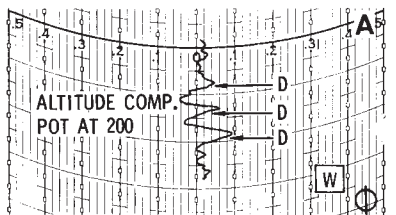 .5 .4 .3 .2 .1 .1 .2 .3 .4 .5
A
D
ALTITUDE COMP.
D
POT AT 200
D
W